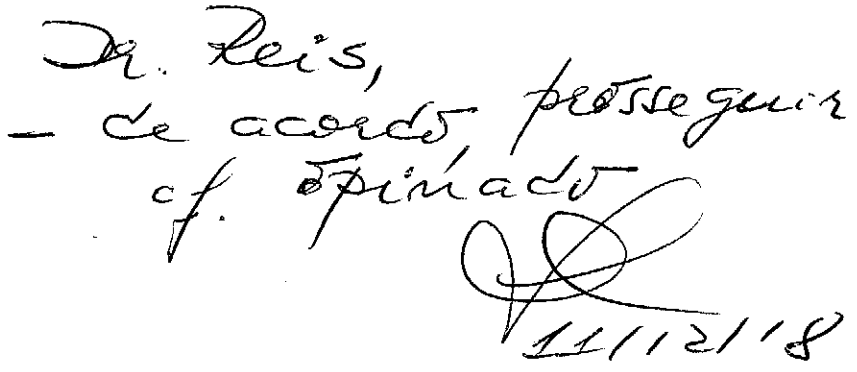 Dr. Reis,
- de acordo, prosseguir
cf. opinado
11/12/18